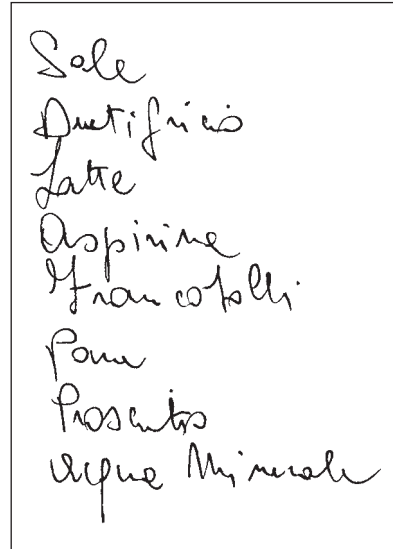 Sale
Dentifricio
Latte
Aspirine
Francobolli
Pane
Prosciutto
Acqua Minerale